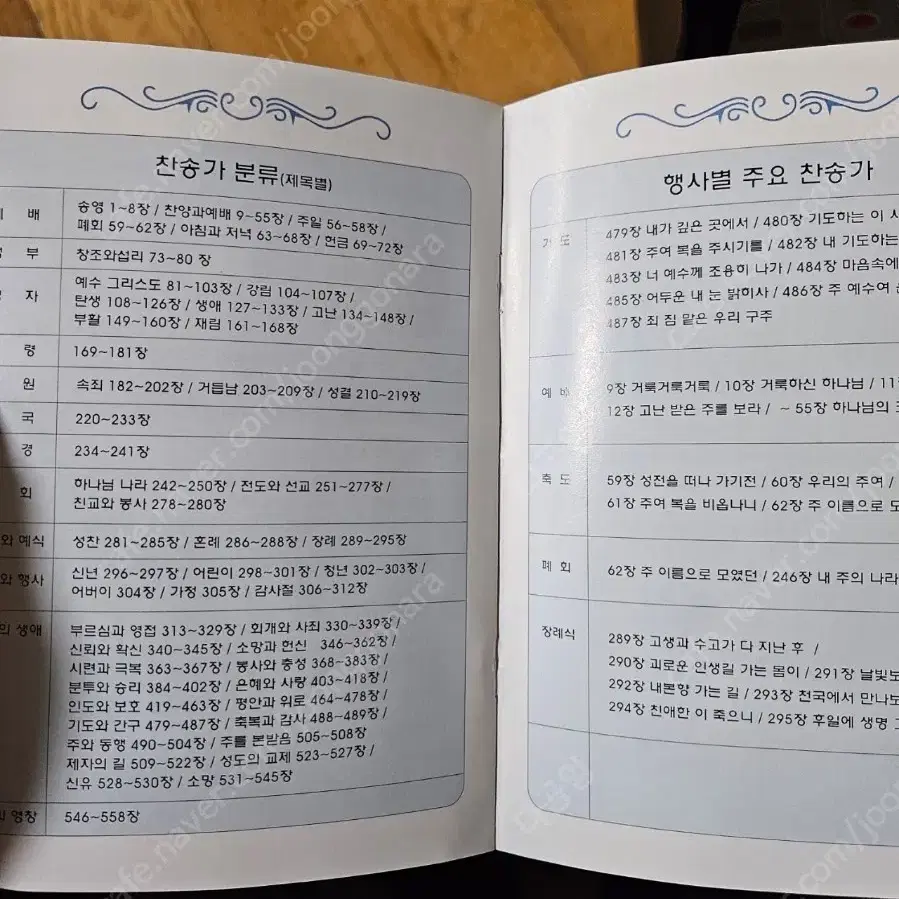 찬송가 분류(제목별)
배
송영 1~8장 / 찬양과예배 9~55장 / 주일 56~58장 /
폐회 59~62장 / 아침과 저녁 63~68장 / 헌금 69~72장
부
창조와섭리 73~80 장
자
예수 그리스도 81~103장 / 강림 104~107장 /
탄생 108~126장 / 생애 127~133장 / 고난 134~148장 /
부활 149~160장 / 재림 161~168장
령
169~181장
원
속죄 182~202장 / 거듭남 203~209장 / 성결 210~219장
국
220~233장
경
234~241장
회
하나님 나라 242~250장 / 전도와 선교 251~277장 /
친교와 봉사 278~280장
와 예식
성찬 281~285장 / 혼례 286~288장 / 장례 289~295장
와 행사
신년 296~297장 / 어린이 298~301장 / 청년 302~303장 /
어버이 304장 / 가정 305장 / 감사절 306~312장
의 생애
부르심과 영접 313~329장 / 회개와 사죄 330~339장 /
신뢰와 확신 340~345장 / 소망과 헌신 346~362장 /
시련과 극복 363~367장 / 봉사와 충성 368~383장 /
분투와 승리 384~402장 / 은혜와 사랑 403~418장 /
인도와 보호 419~463장 / 평안과 위로 464~478장 /
기도와 간구 479~487장 / 축복과 감사 488~489장 /
주와 동행 490~504장 / 주를 본받음 505~508장 /
제자의 길 509~522장 / 성도의 교제 523~527장 /
신유 528~530장 / 소망 531~545장
영창
546~558장
행사별 주요 찬송가
기 도
479장 내가 깊은 곳에서 / 480장 기도하는 이 시
481장 주여 복을 주시기를 / 482장 내 기도하는
483장 너 예수께 조용히 나가 / 484장 마음속에
485장 어두운 내 눈 밝히사 / 486장 주 예수여
487장 죄 짐 맡은 우리 구주
예 배
9장 거룩거룩거룩 / 10장 거룩하신 하나님 / 11
12장 고난 받은 주를 보라 / ~ 55장 하나님의
축 도
59장 성전을 떠나 가기전 / 60장 우리의 주여 /
61장 주여 복을 비옵나니 / 62장 주 이름으로 모
폐 회
62장 주 이름으로 모였던 / 246장 내 주의 나라
장례식
289장 고생과 수고가 다 지난 후 /
290장 괴로운 인생길 가는 몸이 / 291장 날빛보
292장 내본향 가는 길 / 293장 천국에서 만나보
294장 친애한 이 죽으니 / 295장 후일에 생명